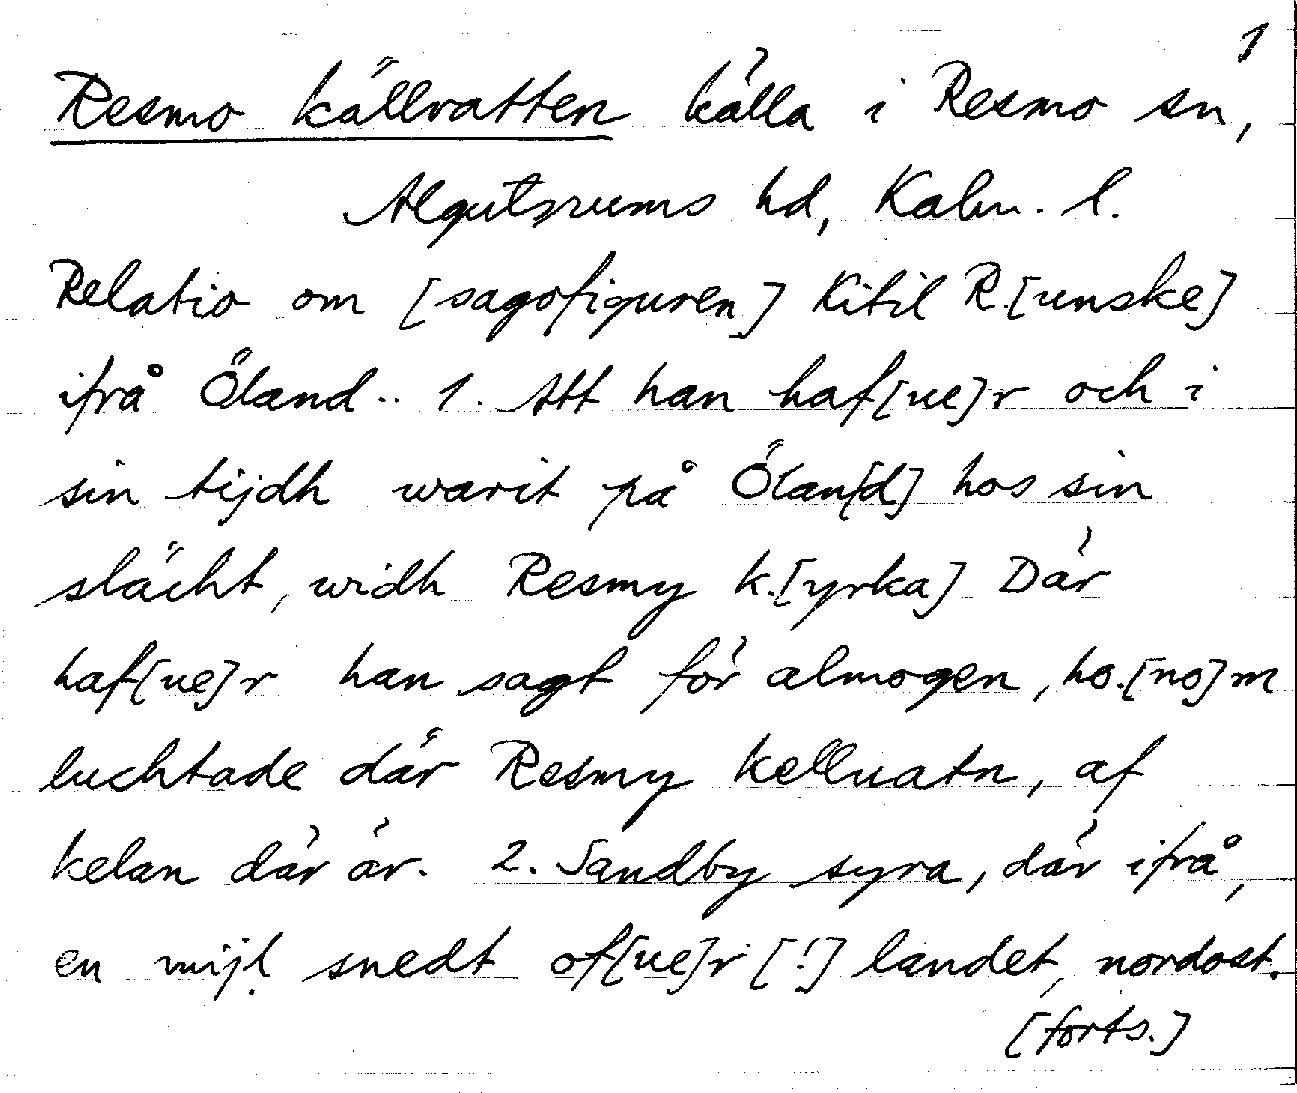 1
Resmo källvatten källa i Resmo sn,
Algutsrums hd, Kalm. l.
Relatio om [sagofiguren] Kitil R.[unske]
ifrå Öland.. 1. Att han haf[ue]r och i
sin tijdh warit på Ölan[d] hos sin
slächt, widh Resmy k.[yrka] Där
haf[ue]r han sagt för almogen, ho.[no]m
luchtade där Resmy Kelluatn, af
kelan där är. 2. Sandby syra, där ifrå,
en mijl snedt of[ue]r [!] landet, nordost.
[forts.]